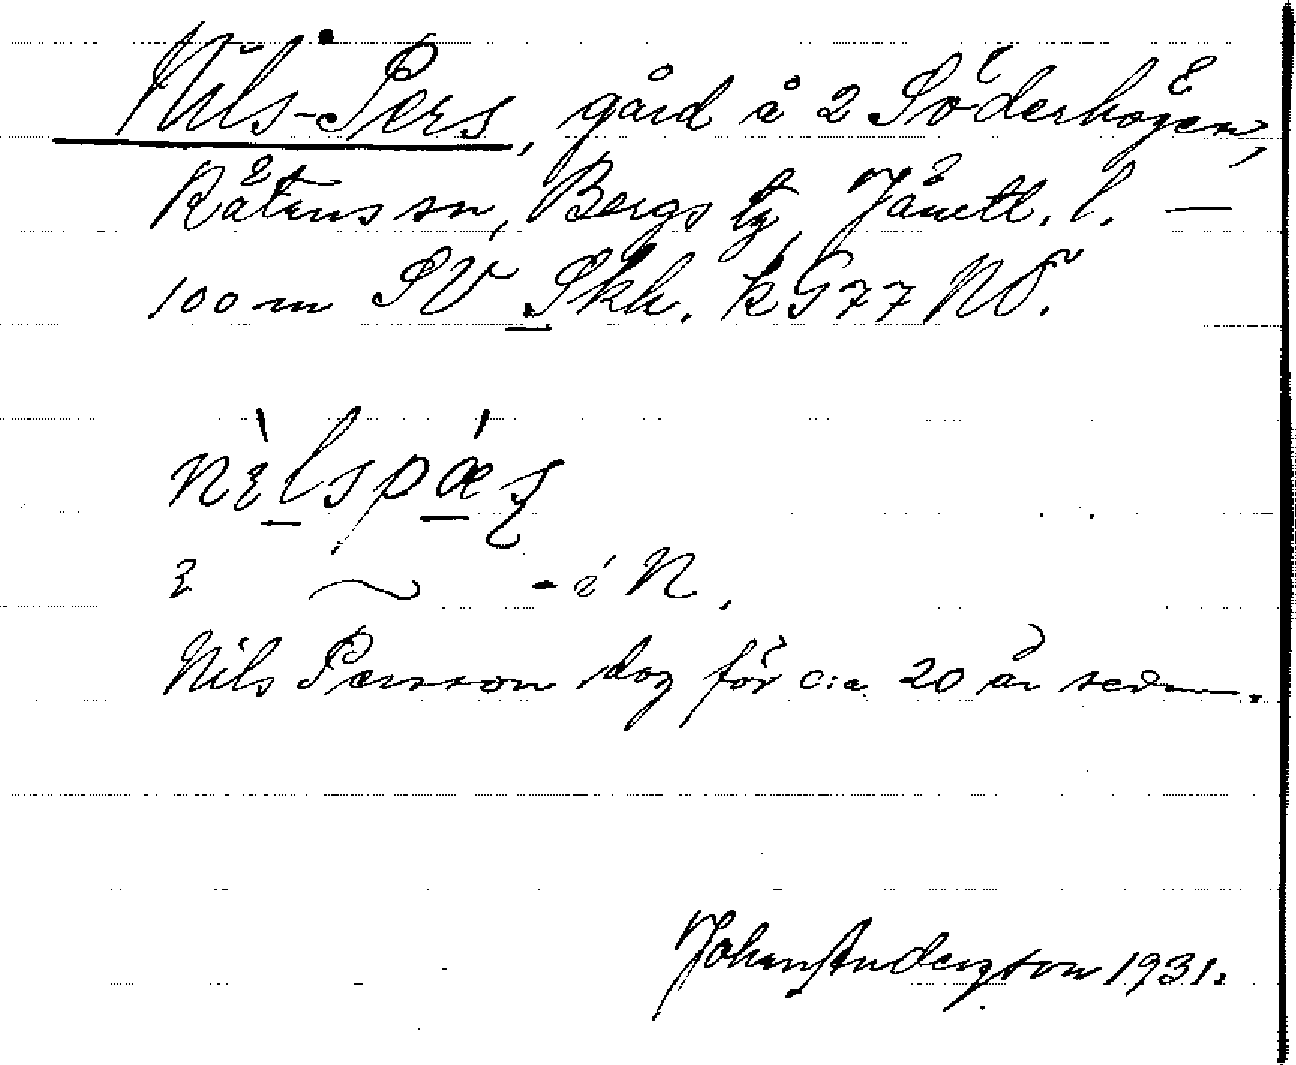 Nils-Pers, gård å 2 Söderhögen,
Rätans sn, Bergs tg, Jämtl. l. —
100 m SV Skh. k G77 NÖ.
i N.
Nils Persson dog för c:a 20 år sedan.
Johan Anderzton 1931.